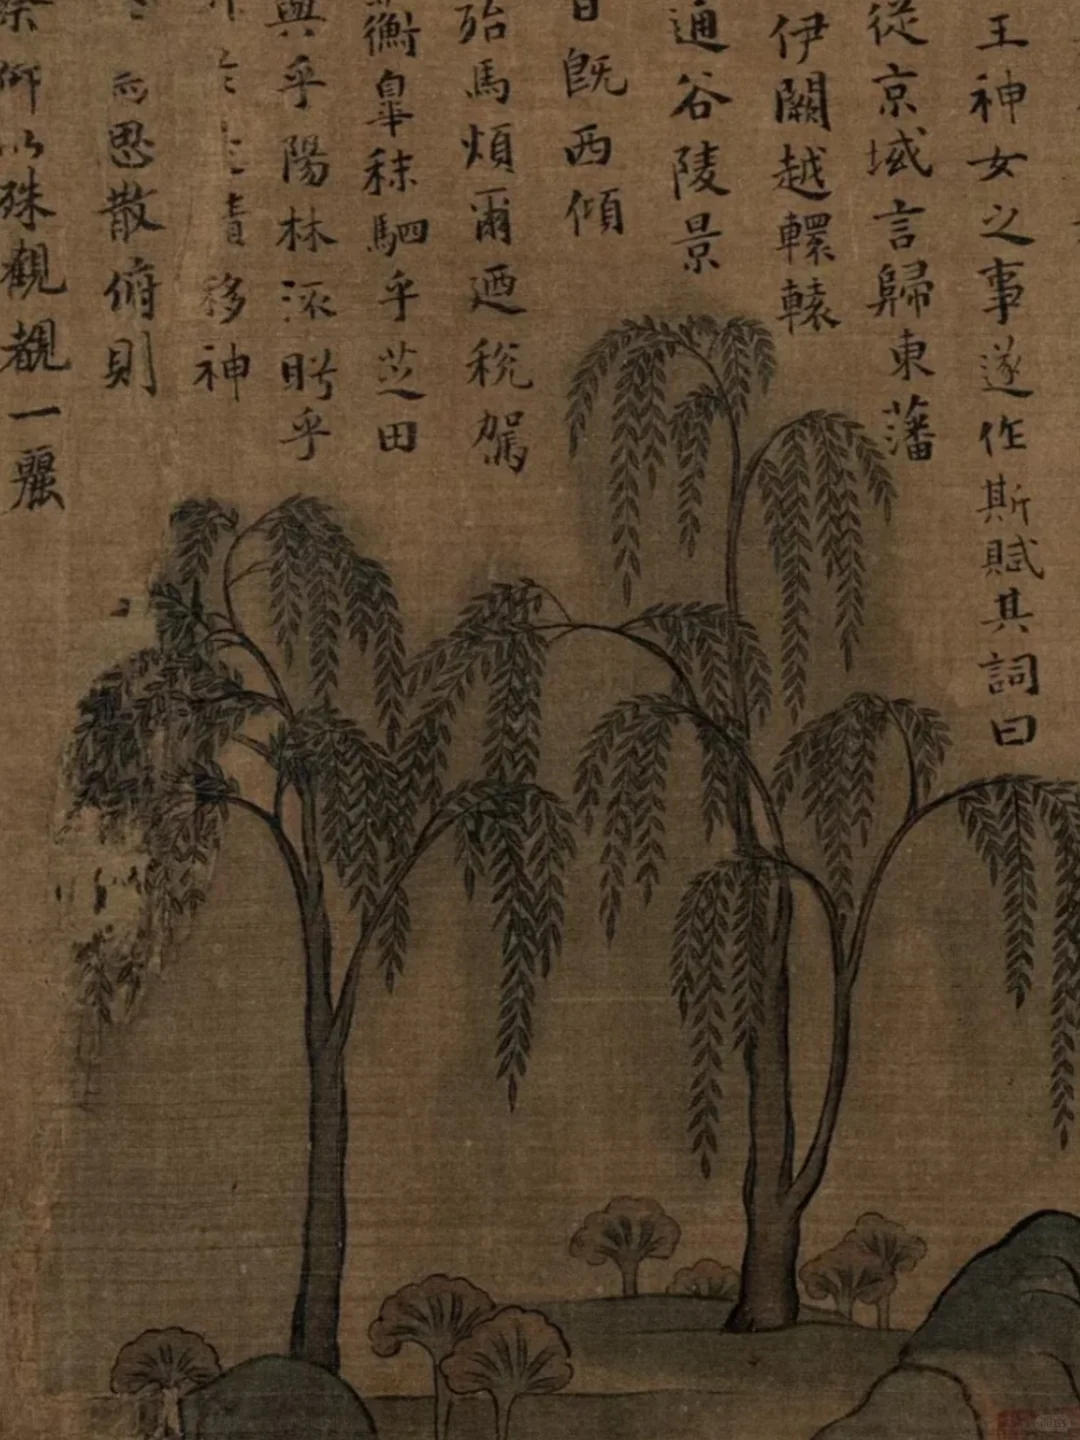 王神女之事遂作斯賦其詞曰
從京域言歸東藩
伊闕越轘轅
通谷陵景
既西傾
殆馬煩爾迺稅駕
蘅皐秣駟乎芝田
與乎陽林流眄乎
移神
思散俯則
仰以殊觀覩一麗